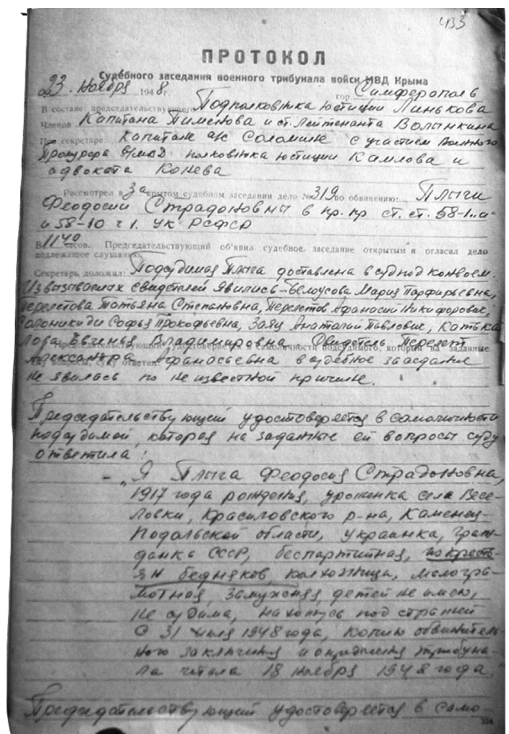 433
ПРОТОКОЛ
Судебного заседания военного трибунала войск МВД Крыма
23. Ноября 1948 г. гор. Симферополь
В составе: председательствующего Подполковника юстиции Линькова
Членов Капитана Пименова и ст. лейтенанта Волынкина
При секретаре Капитане Соломине с участием военного
Прокурора полковника юстиции Камлова и
адвоката Конева
Рассмотрел в за крытом судебном заседании дело № 319 по обвинению: Плыги
Феодосии Страдоновны в пр. пр. ст. ст. 58-1
и 58-10 ч 1. УК РСФСР
В 11 40 часов. Председательствующий об'явил судебное заседание открытым и огласил дело
подлежащее слушанию.
Секретарь доложил: Подсудимая Плыга доставлена в суд под конвоем.
Из вызванных свидетелей явились - Белоусова Мария Парфирьевна,
Татьяна Степановна, Афанасий Никифорович,
Софья Прокофьевна, Заяц Анатолий Павлович,
Евгения Владимировна Свидетель
Александра Афанасьевна в судебное заседание
не явилась по не известной причине.
Председательствующий удостоверяется в самоличности
подсудимой, которая на заданные ей вопросы суду
ответила:
- „Я Плыга Феодосия Страдоновна,
1917 года рождения, уроженка села Весе-
ловки, Красиловского р-на, Каменец-
Подольской области, украинка, граж-
данка СССР, беспартийная, из кресть-
ян бедняков, колхозница, малогра-
мотная, замужняя детей не имею,
не судима, нахожусь под стражей
с 31 июля 1948 года, копию обвинитель-
ного заключения и определения трибуна-
ла читала 18 ноября 1948 года.
Председательствующий удостоверяется в само-